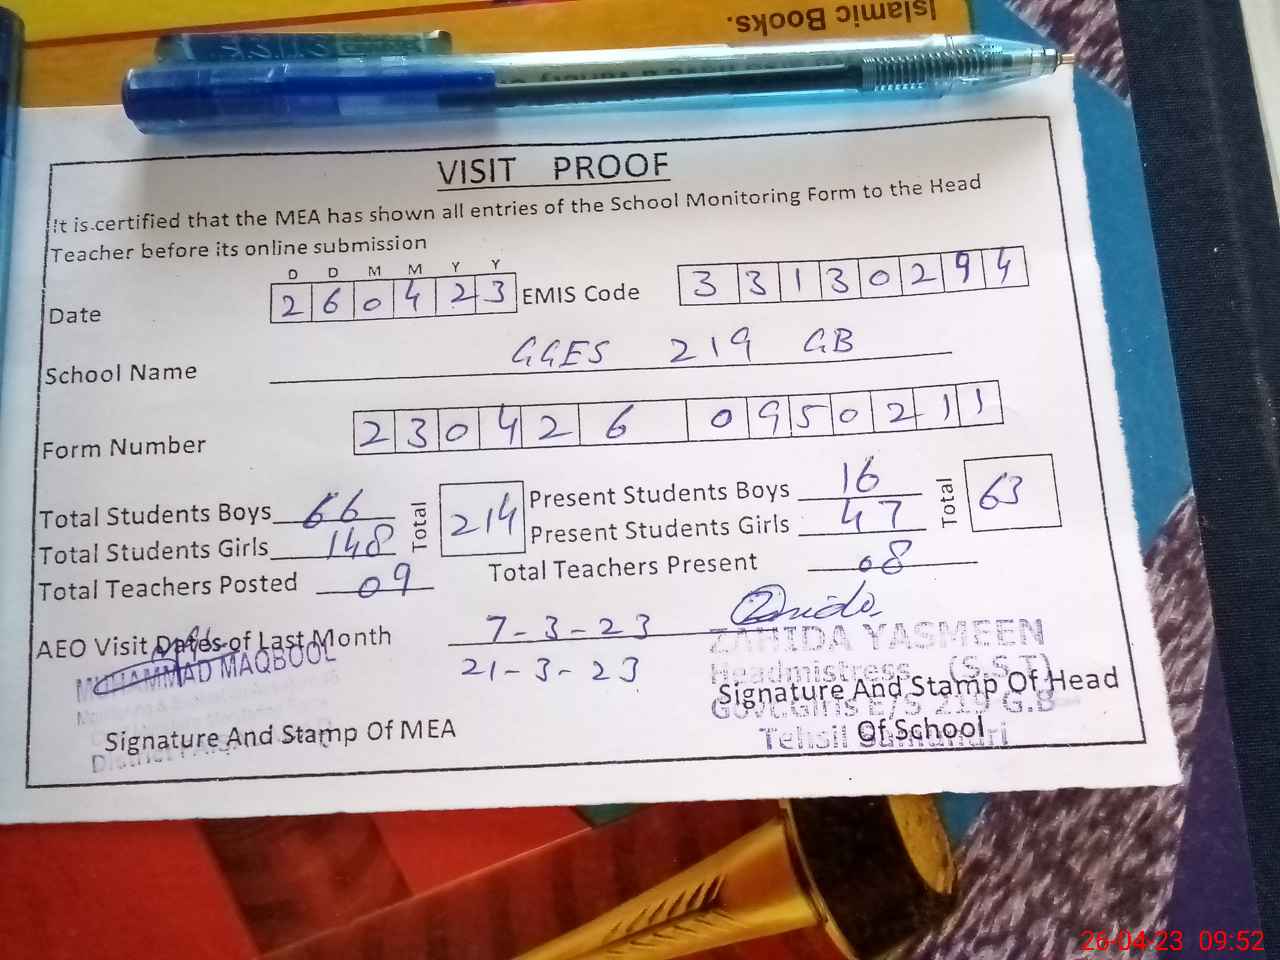 Islamic Books.
VISIT PROOF
It is certified that the MEA has shown all entries of the School Monitoring Form to the Head
Teacher before its online submission
D D M M Y Y
Date 2 6 0 4 2 3 EMIS Code 3 3 1 3 0 2 9 4
School Name GGES 219 GB
Form Number 2 3 0 4 2 6 0 9 5 0 2 1 1
Total Students Boys 66 Total 214 Present Students Boys 16 Total 63
Total Students Girls 148 Present Students Girls 47
Total Teachers Posted 09 Total Teachers Present 08
AEO Visit Dates of Last Month 7-3-23
21-3-23
MUHAMMAD MAQBOOL
ZAHIDA YASMEEN
Headmistress (S.S.T)
Govt.Girls E/S 219 G.B
Tehsil Samundri
Signature And Stamp Of MEA
Signature And Stamp Of Head
Of School
26-04-23 09:52